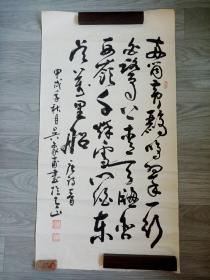 两个黄鹂鸣翠柳一行
白鹭上青天窗含
西岭千秋雪门泊东
吴万里船 唐诗
甲戌年秋月吴